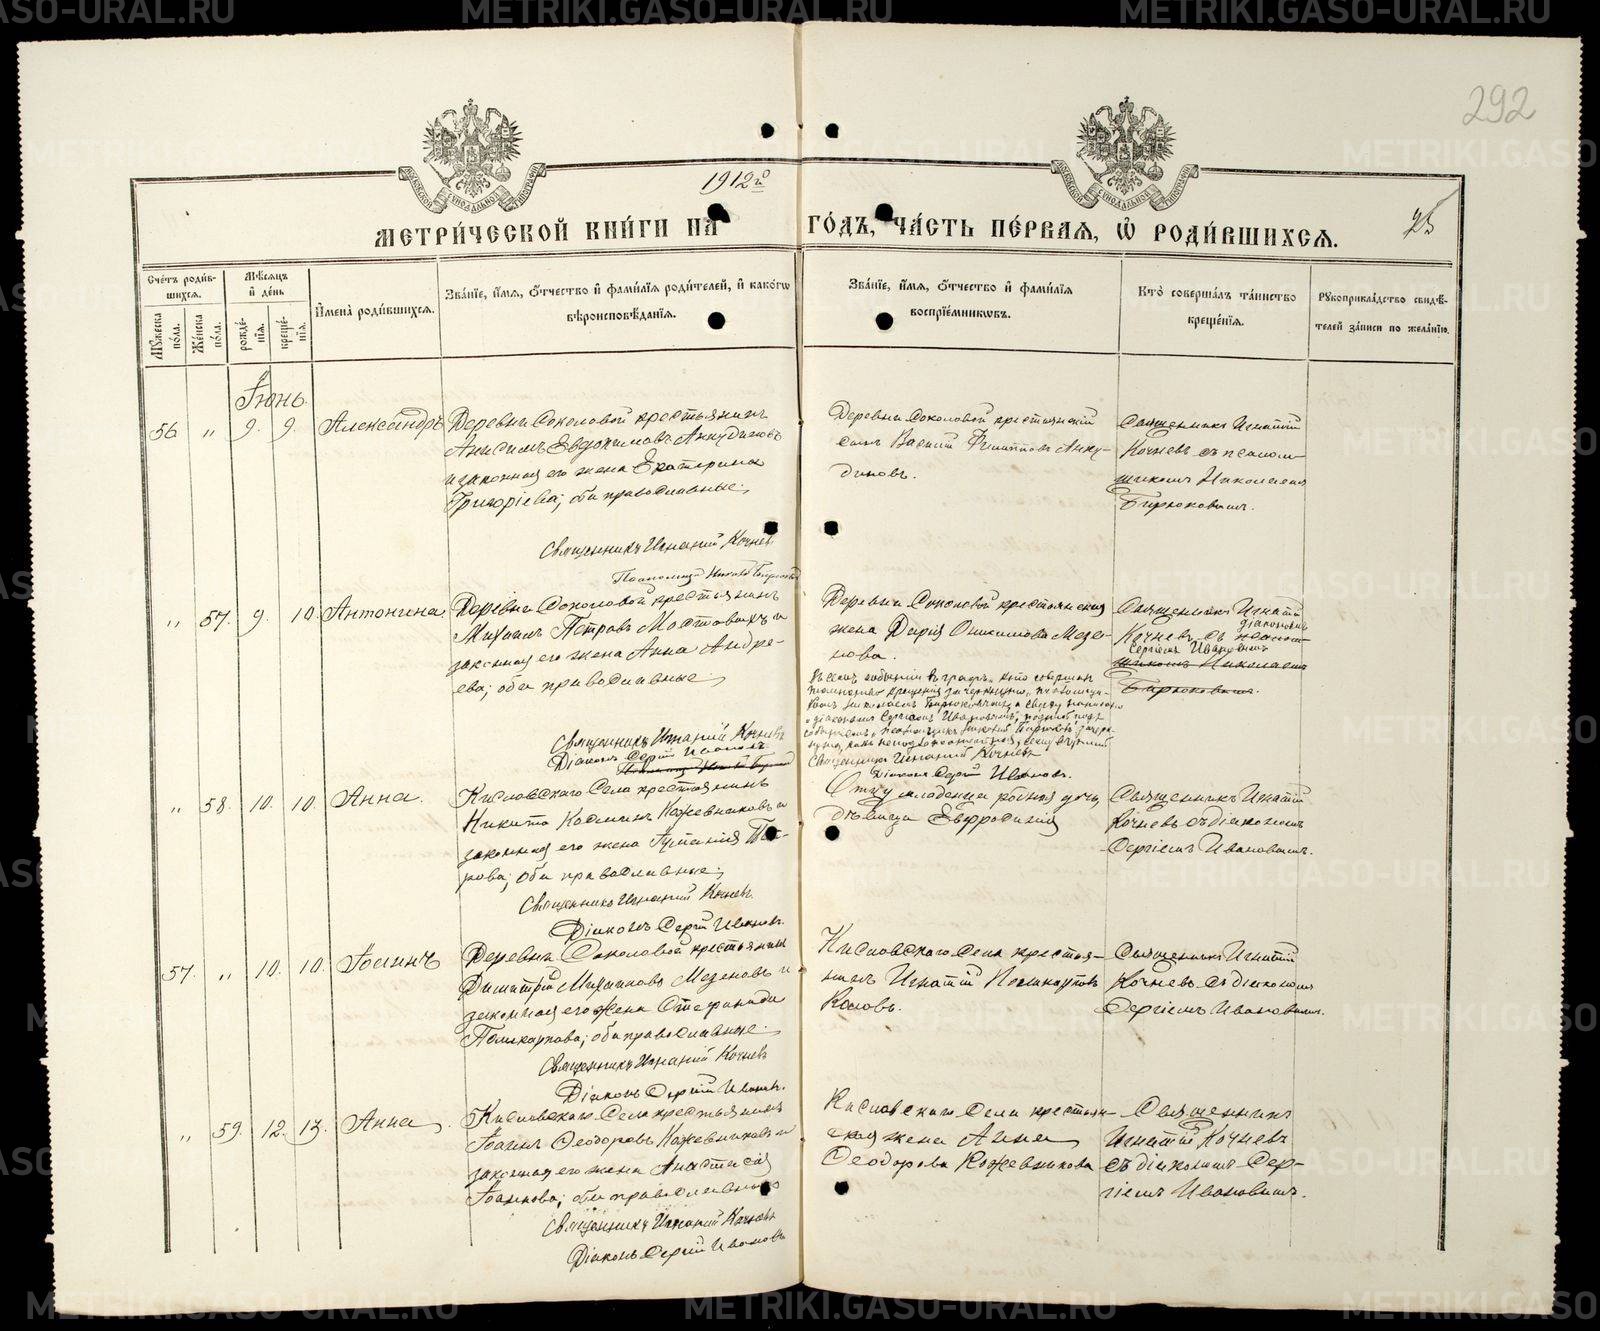 292
1912й
МЕТРИЧЕСКОЙ КНИГИ НА ГОДЪ, ЧАСТЬ ПЕРВАЯ, Ѡ РОДИВШИХСЯ.
25
Счетъ родившихся.
Мужеска пола.
Женска пола.
Мѣсяцъ и день
рожденія.
крещенія.
Имена родившихся.
Званіе, имя, отчество и фамилія родителей, и какогѡ вѣроисповѣданія.
Званіе, имя, отчество и фамилія воспріемникѡвъ.
Кто совершалъ таинство крещенія.
Рукоприкладство свидѣтелей записи по желанію.
Іюнь.
56 „ 9. 9. Александръ
Деревни Соколовой крестьянинъ
Анисимъ Евдокимовъ Анкудиновъ
и законная его жена Екатерина
Григоріева; оба православные.
Священникъ Игнатій Кочневъ
Деревни Соколовой крестьянскій
сынъ Василій Филипповъ Анку-
диновъ.
Священникъ Игнатій
Кочневъ съ псалом-
щикомъ Николаемъ
Бирюковымъ.
„ 57. 9. 10. Антонина.
Деревни Соколовой крестьянинъ
Михаилъ Петровъ Мостовыхъ и
законная его жена Анна Андре-
ева; оба православные.
Священникъ Игнатій Кочневъ
Діаконъ Сергій Ивановъ.
Деревни Соколовой крестьянская
жена Дарія Онисимова Мезе-
нова.
Священникъ Игнатій Кочневъ
Діаконъ Сергій Ивановъ.
Священникъ Игнатій
діакономъ
Кочневъ съ псалом-
Сергіемъ Ивановымъ
щикомъ Николаемъ
Бирюковымъ.
„ 58. 10. 10. Анна.
Кисловскаго Села крестьянинъ
Никита Косминъ Кожевниковъ и
законная его жена
рова; оба православные.
Священникъ Игнатій Кочневъ.
Діаконъ Сергій Ивановъ.
Отцу младенца родная дочь,
дѣвица Евфросинія
Священникъ Игнатій
Кочневъ съ діакономъ
Сергіемъ Ивановымъ.
57. „ 10. 10. Іоаннъ
Деревни Соколовой крестьянинъ
Димитрій Михаиловъ Мезеновъ и
законная его жена Стефанида
Поликарпова; оба православные.
Священникъ Игнатій Кочневъ
Діаконъ Сергій Ивановъ.
Кисловскаго Села крестья-
нинъ Игнатій Поликарповъ
Священникъ Игнатій
Кочневъ съ діакономъ
Сергіемъ Ивановымъ.
„ 59. 12. 13. Анна
Кисловскаго Села крестьянинъ
Іоаннъ Ѳеодоровъ Кожевниковъ и
законная его жена Анастасія
Іоаннова; оба православные
Священникъ Игнатій Кочневъ
Діаконъ Сергій Ивановъ
Кисловскаго Села крестьян-
ская жена Анна
Ѳеодорова Кожевникова
Священникъ
Игнатій Кочневъ
съ діакономъ Сер-
гіемъ Ивановымъ.
METRIKI.GASO-URAL.RU